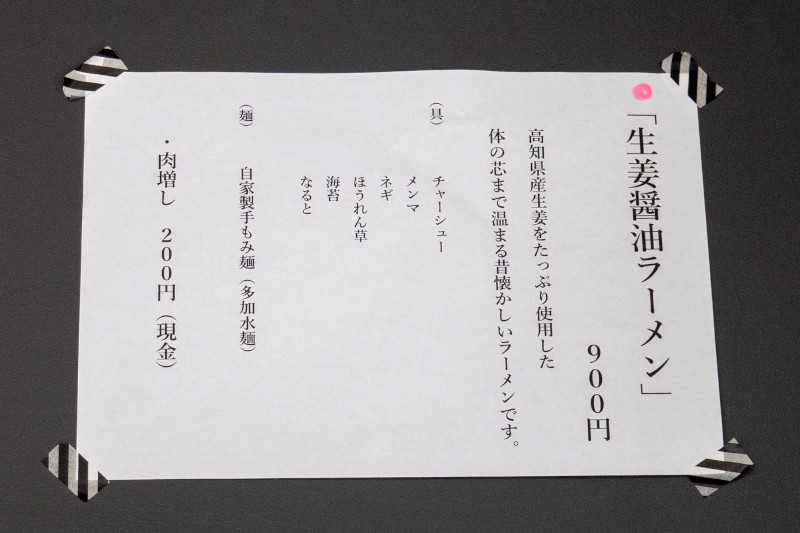 「生姜醤油ラーメン」
900円
高知県産生姜をたっぷり使用した
体の芯まで温まる昔懐かしいラーメンです。
（具）
チャーシュー
メンマ
ネギ
ほうれん草
海苔
なると
（麺） 自家製手もみ麺（多加水麺）
・肉増し 200円（現金）